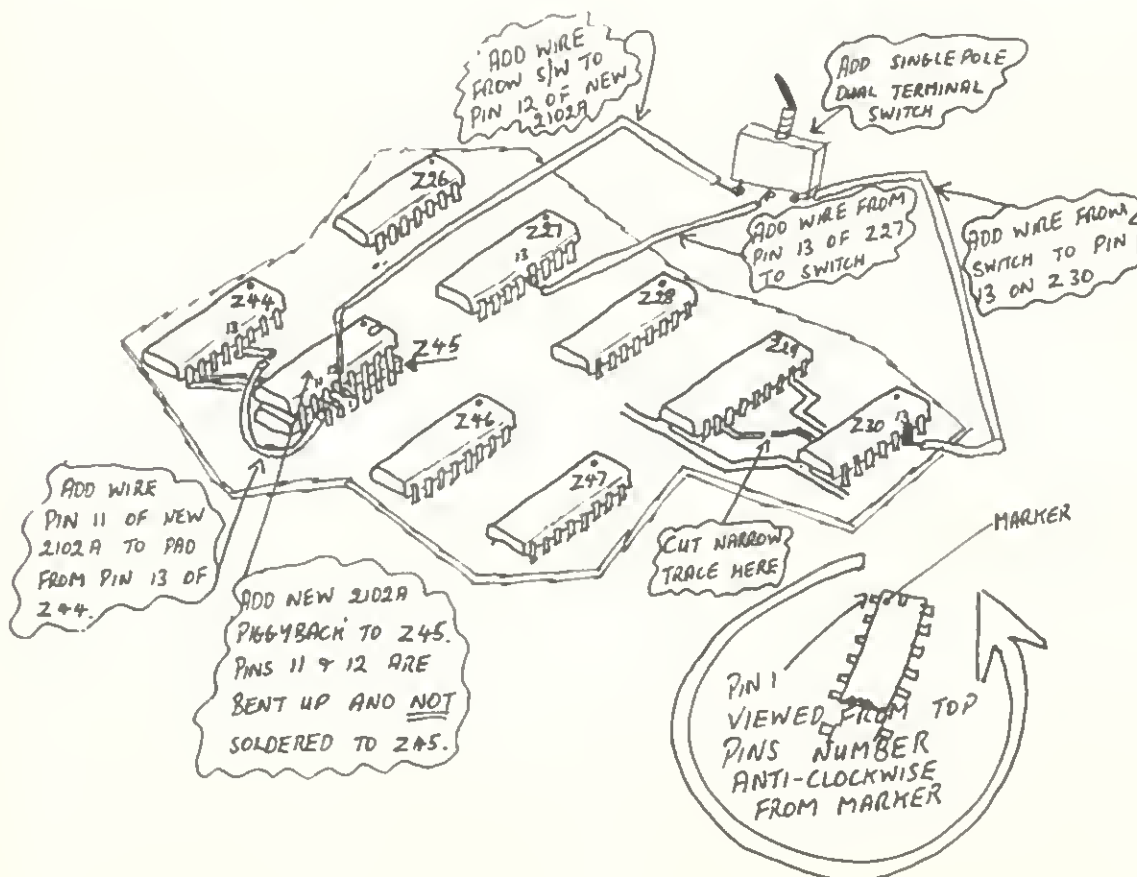 ADD WIRE
FROM S/W TO
PIN 12 OF NEW
2102A
ADD SINGLE POLE
DUAL TERMINAL
SWITCH
Z26
Z27
13
ADD WIRE FROM
PIN 13 OF Z27
TO SWITCH
ADD WIRE FROM
SWITCH TO PIN
13 ON Z30
Z44
13
Z45
11
Z28
Z29
Z30
13
Z46
Z47
ADD WIRE
PIN 11 OF NEW
2102A TO PAD
FROM PIN 13 OF
Z44.
ADD NEW 2102A
PIGGYBACK TO Z45.
PINS 11 & 12 ARE
BENT UP AND NOT
SOLDERED TO Z45.
CUT NARROW
TRACE HERE
MARKER
PIN 1
VIEWED FROM TOP
PINS NUMBER
ANTI-CLOCKWISE
FROM MARKER